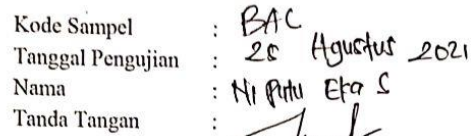 Kode Sampel : BAC
Tanggal Pengujian : 28 Agustus 2021
Nama : Ni Putu Eka S
Tanda Tangan :